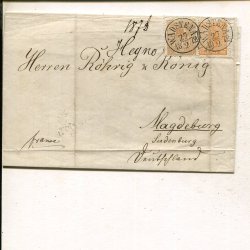 1878
Hegno.
Herren Röhrig & König
franco
Magdeburg
Sudenburg
Deutschland